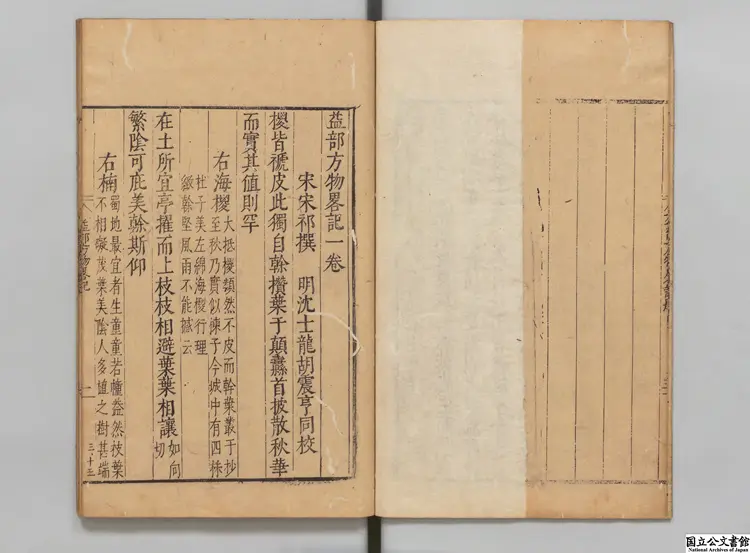 益部方物畧記一卷
宋宋祁撰　明沈士龍胡震亨同校
椶皆褫皮此獨自榦攢葉于顛纛首披散秋華
而實其值則罕
右海椶大抵椶類然不皮而幹葉叢于杪
至秋乃實似楝子今城中有四株
杜子美左綿海椶行理
緻榦堅風雨不能撼云
在土所宜亭擢而上枝枝相避葉葉相讓如向
切
繁陰可庇美榦斯仰
右楠蜀地最宜者生童童若幢蓋然枝葉
不相礙茂葉美陰人多植之樹甚端
益部方物畧記
二
三・十三
国立公文書館
National Archives of Japan